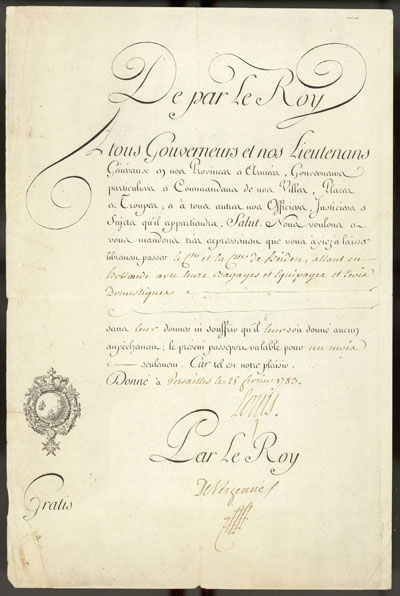 De par le Roy
A tous Gouverneurs et nos Lieutenans
Généraux en nos Provinces et Armées, Gouverneurs
particuliers et Commandans de nos Villes, Places
et Troupes, et à tous autres nos Officiers, Justiciers et
Sujets qu'il appartiendra, Salut. Nous voulons et
vous mandons très expressément que vous ayiez à laisser
librement passer le Cte et la Ctesse de allant en
hollande avec leurs Bagages et Equipages et trois
Domestiques
sans leur donner ni souffrir qu'il leur soit donné aucun
empêchement; le présent passeport valable pour un mois
seulement. Car tel est notre plaisir.
Donné à Versailles le 25 fevrier 1783.
Louis
Par le Roy
De Vergennes
Gratis